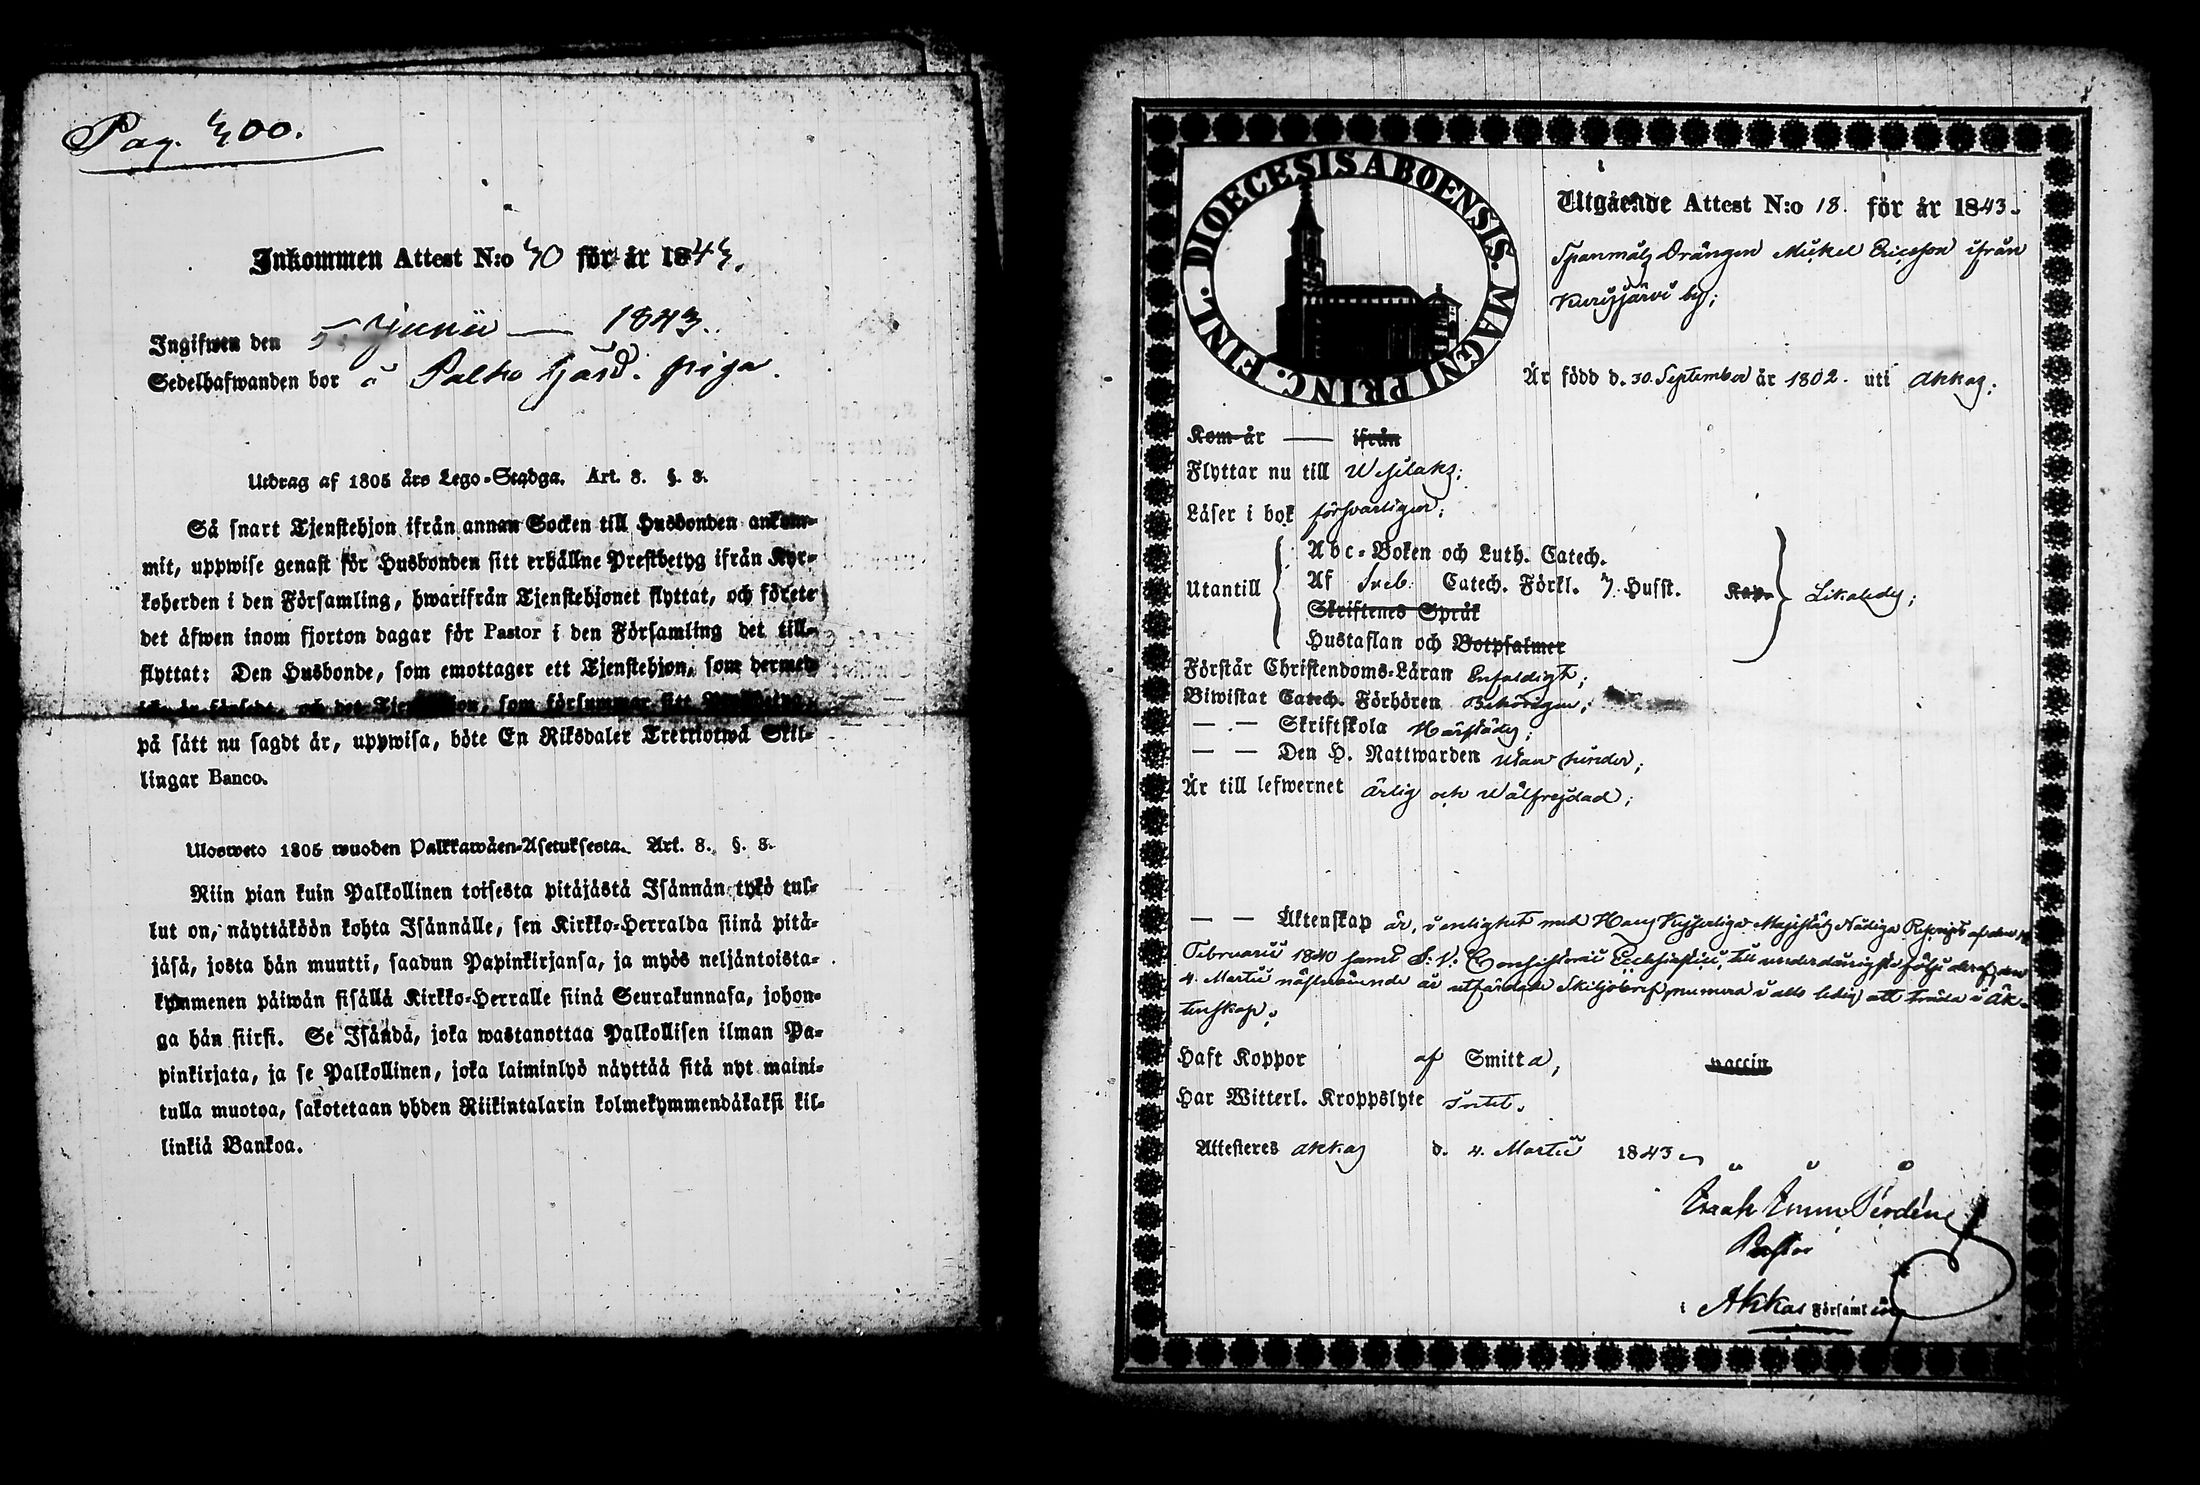 Pag. 300.
Inkommen Attest N:o 30 för år 1843.
Ingifwen den 5. Junii — 1843.
Sedelhafwanden bor å Palho Gård. piga.
Utdrag af 1805 års Lego-Stadga. Art. 8. §. 3.
Så snart Tjenstehjon ifrån annan Socken till Husbonden ankom-
mit, uppwise genast för Husbonden sitt erhållne Prestbetyg ifrån Kyr-
koherden i den Församling, hwarifrån Tjenstehjonet flyttat, och förete
det äfwen inom fjorton dagar för Pastor i den Församling det till-
flyttat: Den Husbonde, som emottager ett Tjenstehjon, som dermed
icke är försedt, och det Tjenstehjon, som försummar sitt
på sätt nu sagdt är, uppwisa, böte En Riksdaler Trettiotwå Skil-
lingar Banco.
Ulosweto 1805 wuoden Palkkawäen-Asetuksesta. Art. 8. §. 3.
Niin pian kuin Palkollinen toisesta pitäjästä Isännän tykö tul-
lut on, näyttäköön kohta Isännälle, sen Kirkko-Herralda siinä pitä-
jäsä, josta hän muutti, saadun Papinkirjansa, ja myös neljäntoista-
kymmenen päiwän sisällä Kirkko-Herralle siinä Seurakunnasa, johon-
ga hän siirsi. Se Isändä, joka wastanottaa Palkollisen ilman Pa-
pinkirjata, ja se Palkollinen, joka laiminlyö näyttää sitä nyt maini-
tulla muotoa, sakotetaan yhden Riikintalarin kolmekymmendäkaksi kil-
linkiä Bankoa.
DIOECESIS ABOENSIS. MAGNI PRINC. FINL.
Utgående Attest N:o 18. för år 1843.
Spanmåls Drängen Mickel Ericsson ifrån
Kurisjärvi by;
Är född d. 30. September år 1802. uti Akkas;
Kom år — ifrån
Flyttar nu till Wesilaks;
Läser i bok försvarligen;
Utantill
Abc-Boken och Luth. Catech.
Af Sveb. Catech. Förkl. 3. Husst. Kap.
Likaledes;
Skriftenes Språk
Hustaflan och Botpsalmer
Förstår Christendoms-Läran Enfaldigt;
Biwistat Catech. Förhören Behörigen;
— — Skriftskola Härstädes;
— — Den H. Nattwarden utan hinder;
Är till lefwernet ärlig och wälfrejdad;
— — Äktenskap är, i enlighet med Hans Kejserliga Majestäts Nådiga Rescript af den
Februarii 1840 samt S. V. Consistorii Ecclesiastici, till underdånigste följe deraf, den
4. Martii nästberörde år utfärdade Skiljobref, numera i allo ledig att träda i Äk-
tenskap;
Haft Koppor af Smitta, vaccin
Har Witterl. Kroppslyte intet.
Attesteres Akkas d. 4. Martii 1843
Isaak Imm. Perdén
Pastor
i Akkas Församling